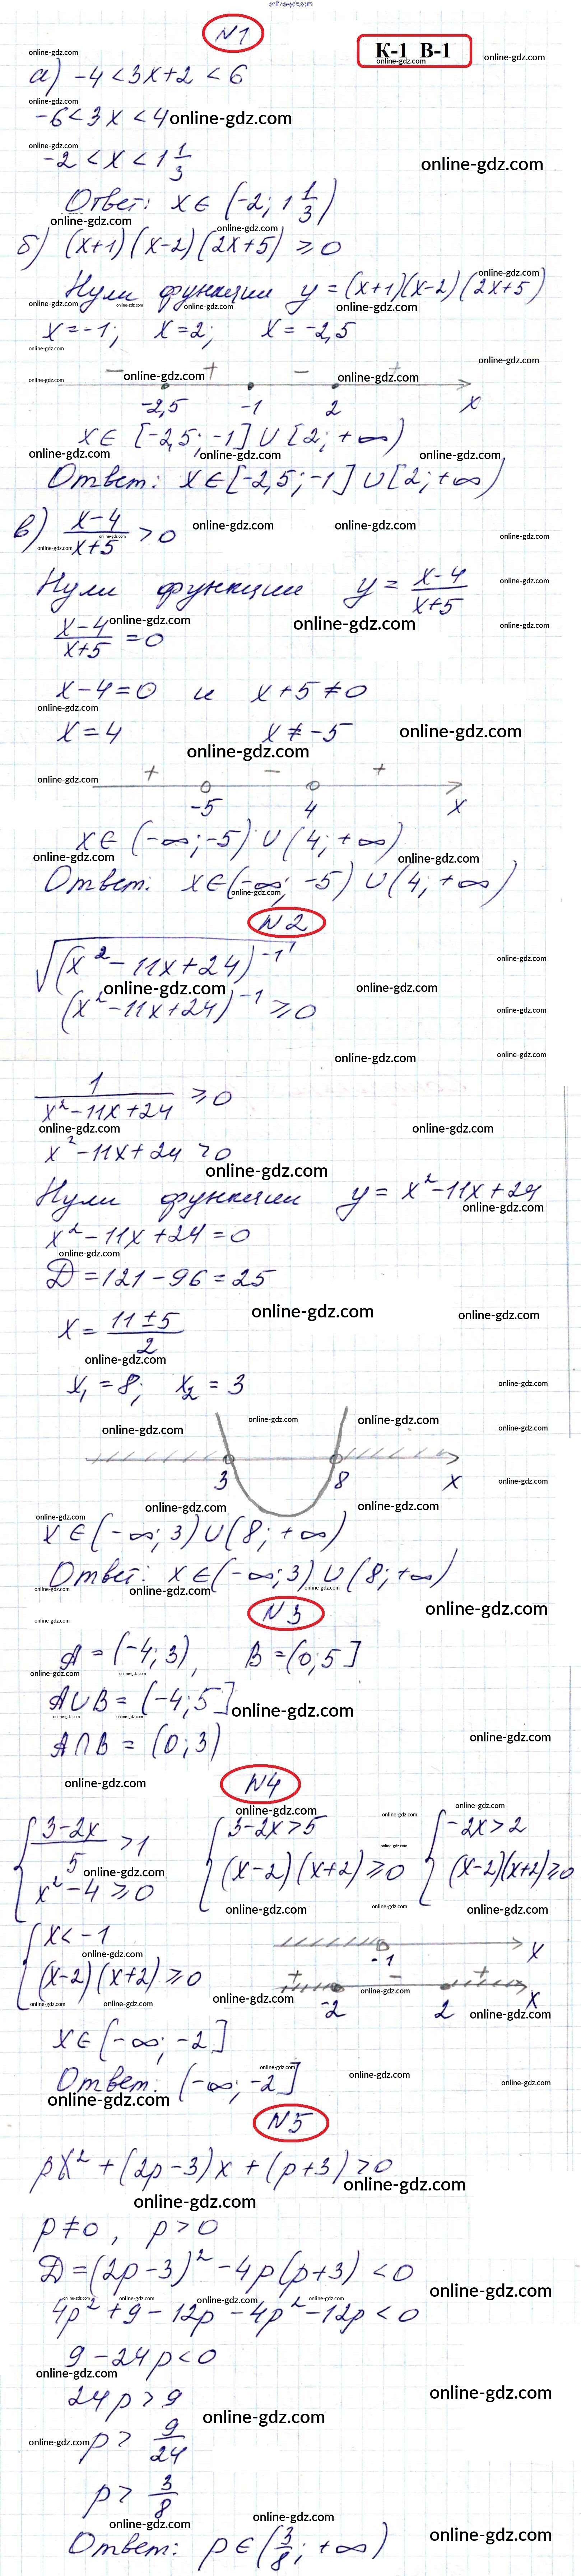 online-gdz.com
N1
К-1 В-1
а) -4 < 3x+2 < 6
-6 < 3x < 4
-2 < x < 1 1/3
Ответ: x ∈ (-2; 1 1/3)
б) (x+1)(x-2)(2x+5) ≥ 0
Нули функции y = (x+1)(x-2)(2x+5)
x = -1; x = 2; x = -2,5
- + - +
-2,5 -1 2 x
x ∈ [-2,5; -1] ∪ [2; +∞)
Ответ: x ∈ [-2,5; -1] ∪ [2; +∞)
в) (x-4)/(x+5) > 0
Нули функции y = (x-4)/(x+5)
(x-4)/(x+5) = 0
x-4=0 и x+5≠0
x = 4 x ≠ -5
+ - +
-5 4 x
x ∈ (-∞; -5) ∪ (4; +∞)
Ответ: x ∈ (-∞; -5) ∪ (4; +∞)
N2
√((x²-11x+24)⁻¹)
(x²-11x+24)⁻¹ ≥ 0
1/(x²-11x+24) ≥ 0
x²-11x+24 > 0
Нули функции y = x²-11x+24
x²-11x+24 = 0
D = 121-96 = 25
x = (11±5)/2
x₁ = 8; x₂ = 3
3 8 x
x ∈ (-∞; 3) ∪ (8; +∞)
Ответ: x ∈ (-∞; 3) ∪ (8; +∞)
N3
A = (-4; 3), B = (0; 5]
A∪B = (-4; 5]
A∩B = (0; 3)
N4
{ (3-2x)/5 > 1 { 3-2x > 5 { -2x > 2
x²-4 ≥ 0 (x-2)(x+2) ≥ 0 (x-2)(x+2) ≥ 0
{ x < -1
-1 x
(x-2)(x+2) ≥ 0
+ - +
-2 2 x
x ∈ (-∞; -2]
Ответ: (-∞; -2]
N5
px² + (2p-3)x + (p+3) > 0
p ≠ 0, p > 0
D = (2p-3)² - 4p(p+3) < 0
4p² + 9 - 12p - 4p² - 12p < 0
9 - 24p < 0
24p > 9
p > 9/24
p > 3/8
Ответ: p ∈ (3/8; +∞)